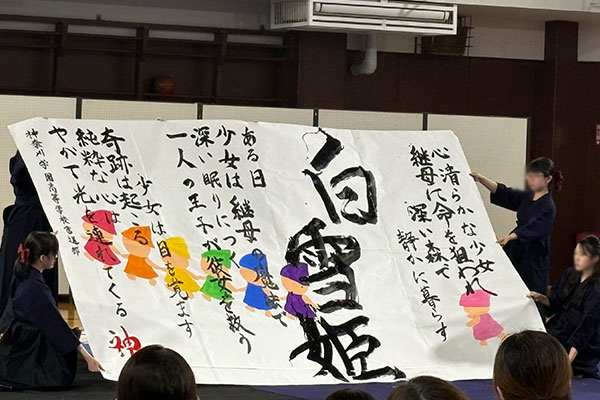 心清らかな少女
継母に命を狙われ
深い森で
静かに暮らす
白雪姫
ある日
少女は継母の
深い眠りにつ
一人の王子が彼女を救い
少女は目を覚ます
奇跡は起こる
純粋な心は
やがて光を連れてくる
神奈川学園高等学校書道部
神